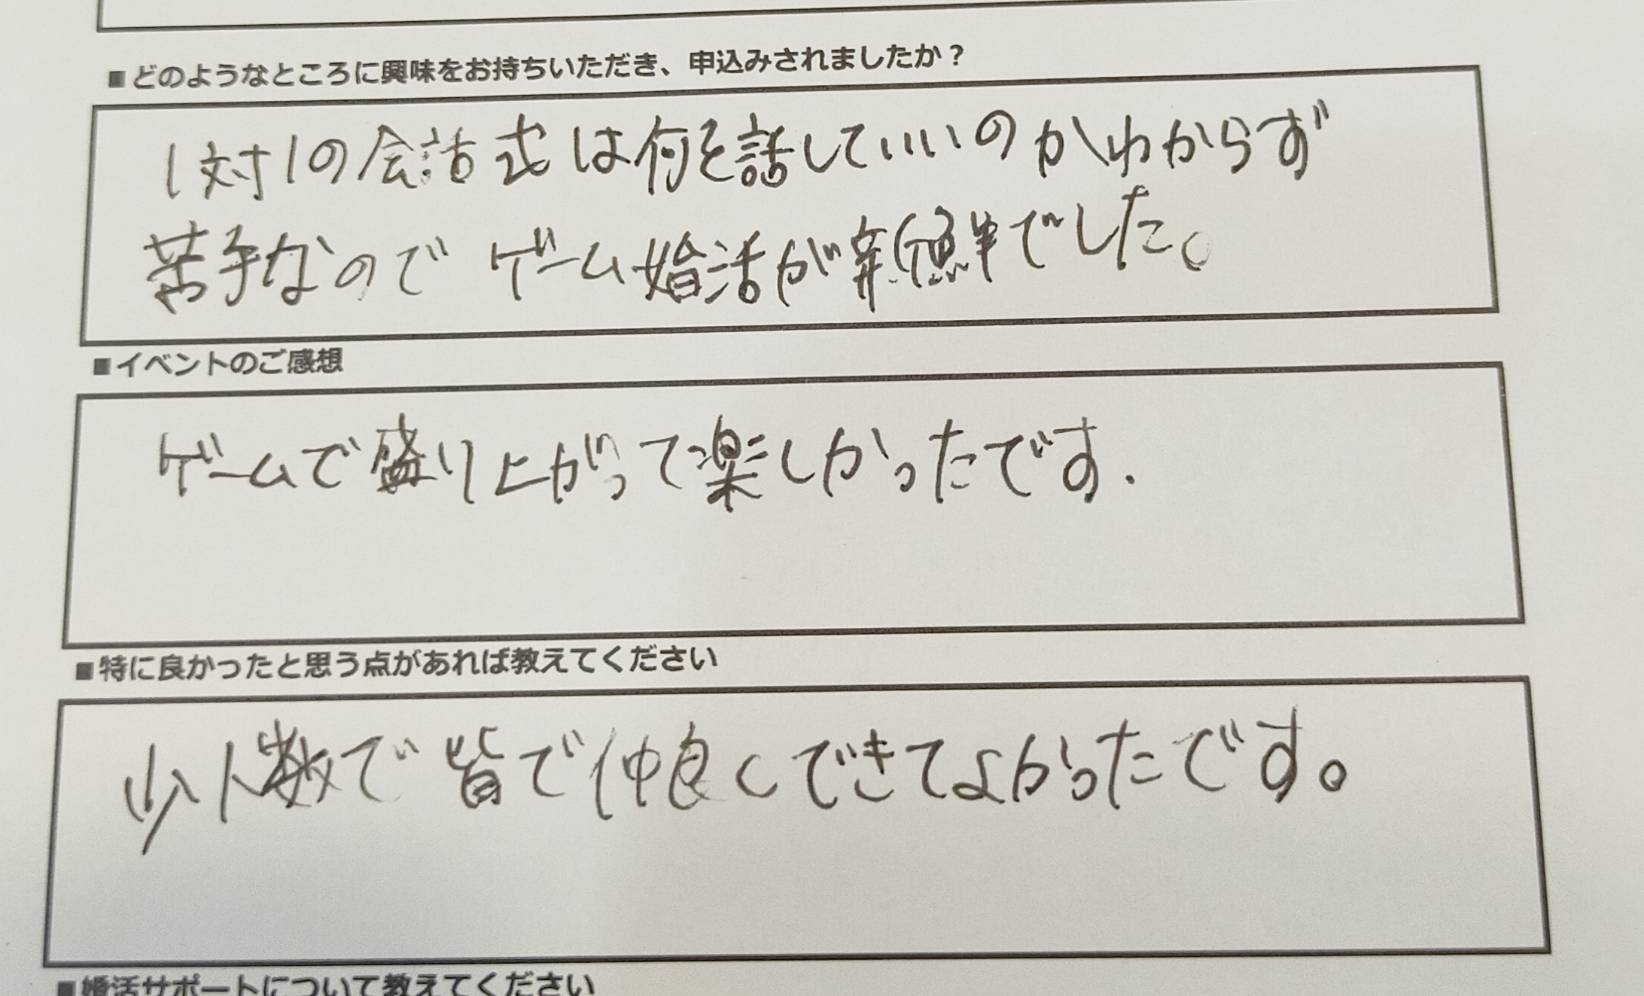 ■どのようなところに興味をお持ちいただき、申込みされましたか？
1対1の会話式は何を話していいのかわからず
苦手なのでゲーム婚活が新鮮でした。
■イベントのご感想
ゲームで盛り上がって楽しかったです.
■特に良かったと思う点があれば教えてください
少人数で皆で仲良くできてよかったです。
■婚活サポートについて教えてください